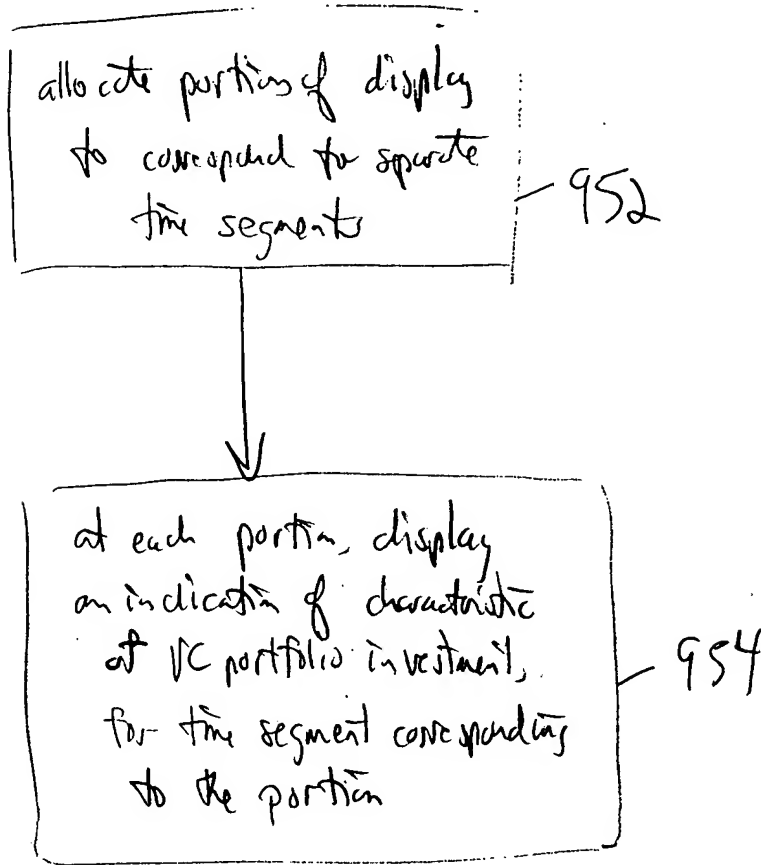 allocate portions of display
to correspond to separate
time segments
952
at each portion, display
an indication of characteristic
of VC portfolio investment,
for time segment corresponding
to the portion
954